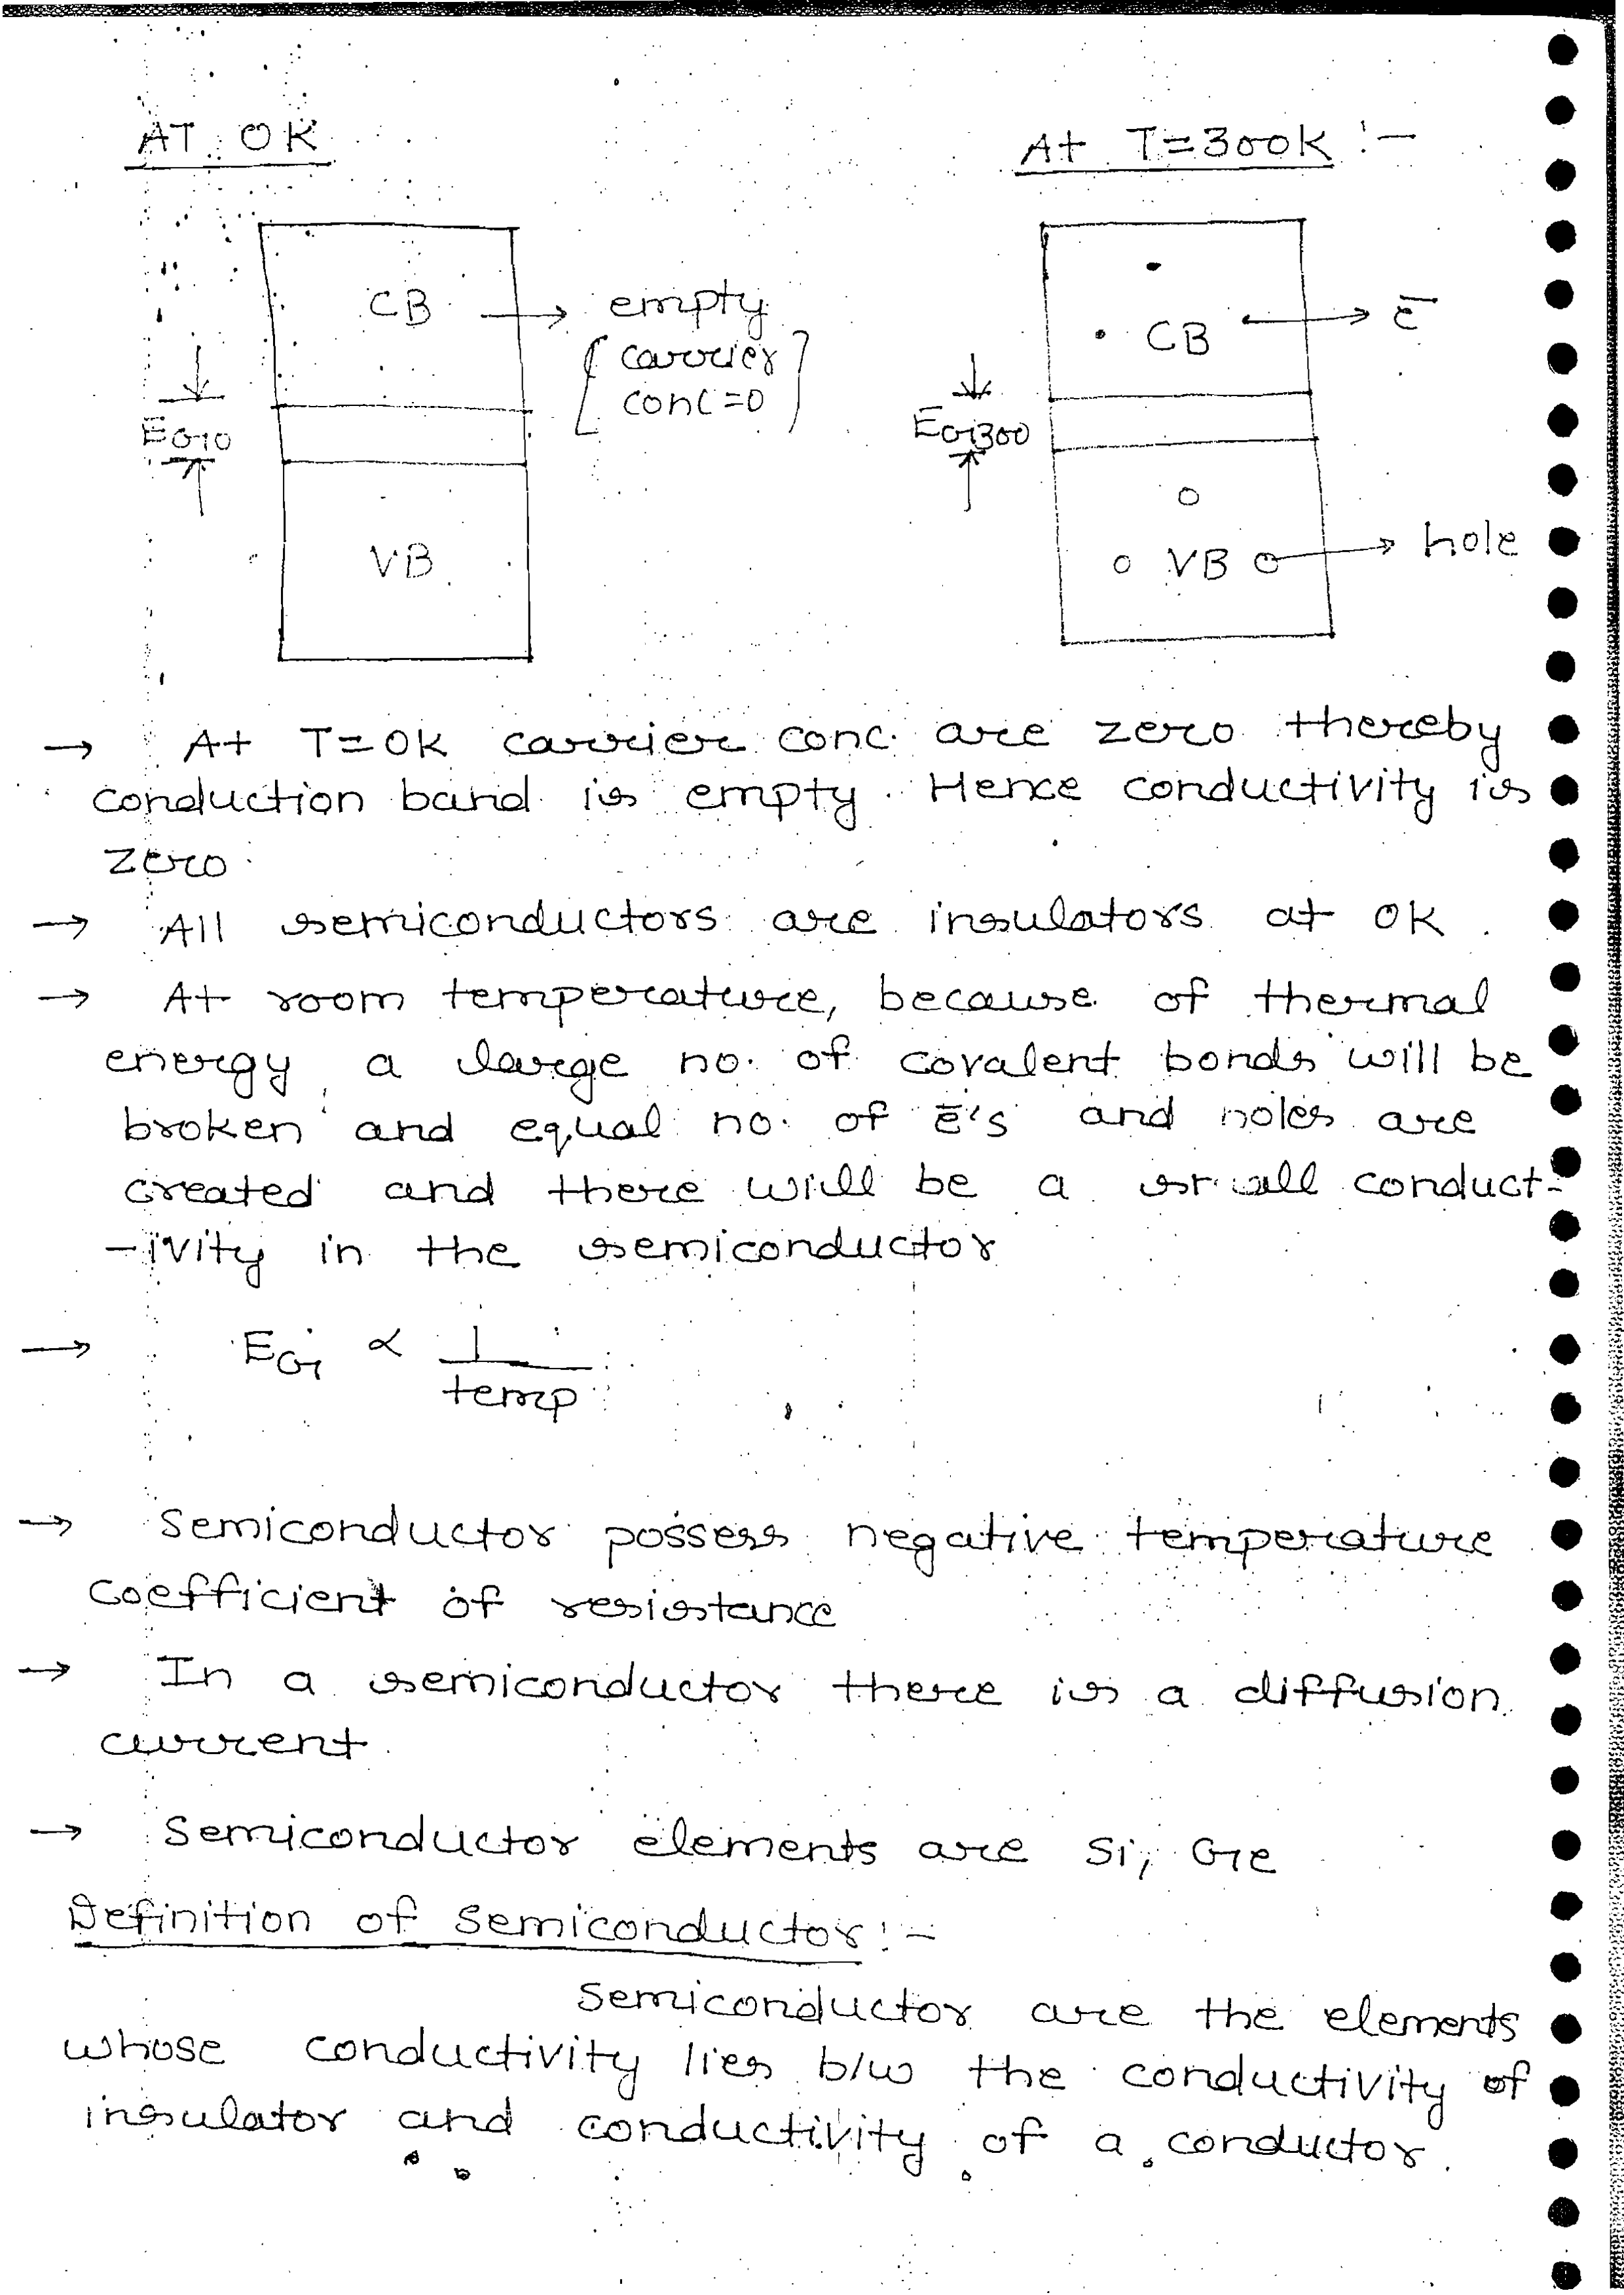 AT 0K
At T=300K :-
CB → empty
[carrier
conc=0]
EG0
VB
CB → ē
EG300
VB → hole
→ At T=0K carrier conc. are zero thereby
conduction band is empty. Hence conductivity is
zero.
→ All semiconductors are insulators at 0K.
→ At room temperature, because of thermal
energy, a large no. of covalent bonds will be
broken and equal no. of ē's and holes are
created and there will be a small conduct-
-ivity in the semiconductor
→ EG ∝ 1
temp
→ Semiconductor possess negative temperature
coefficient of resistance
→ In a semiconductor there is a diffusion
current.
→ Semiconductor elements are Si, Ge
Definition of Semiconductor :-
Semiconductor are the elements
whose conductivity lies b/w the conductivity of
insulator and conductivity of a conductor.